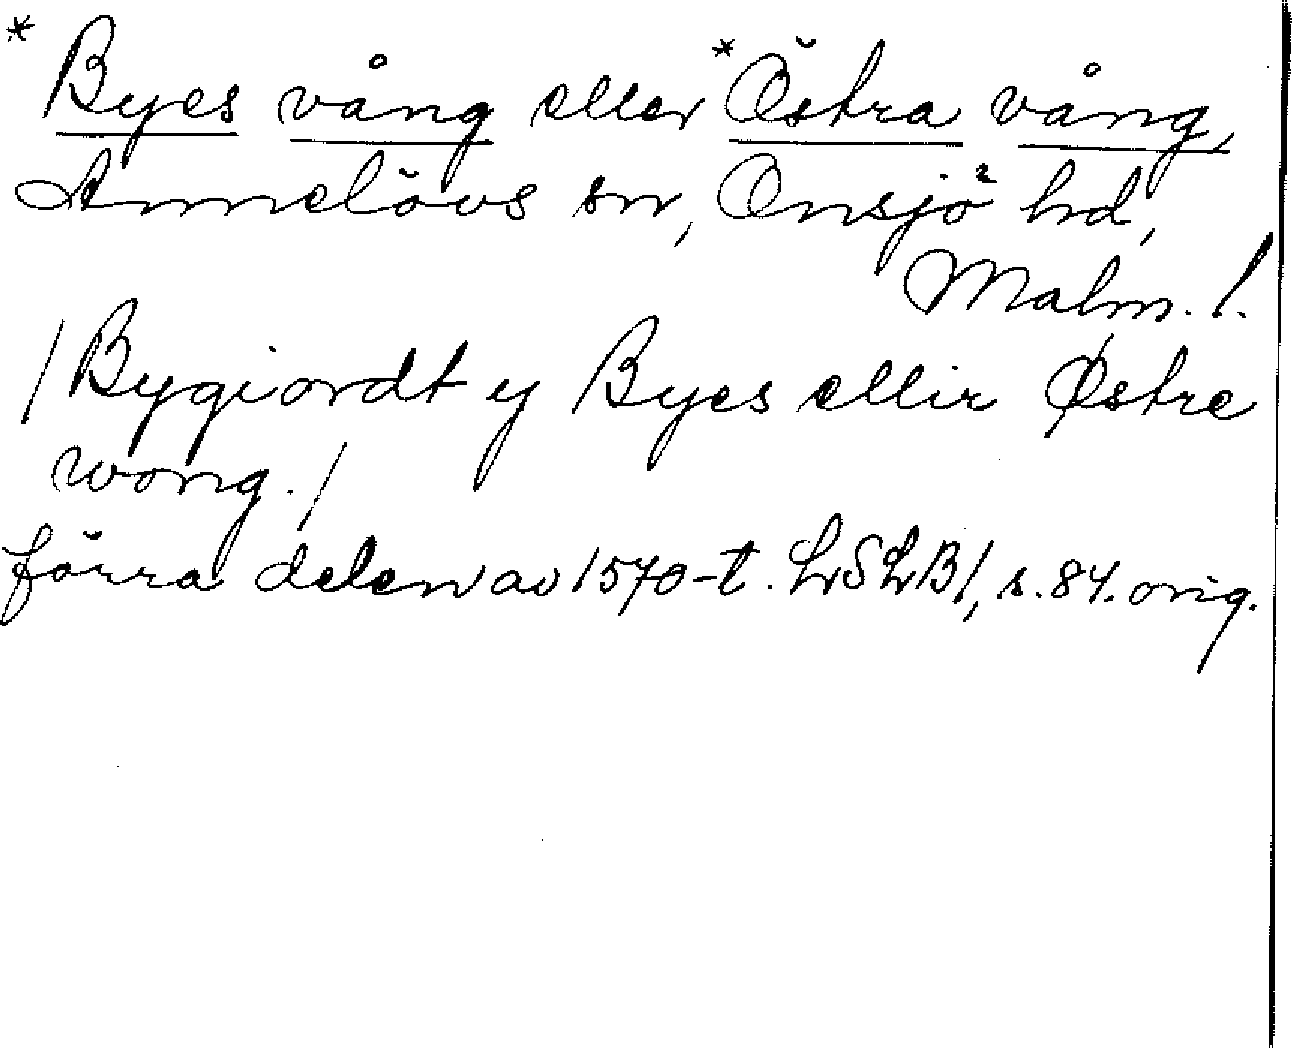 * Byes vång eller * Östra vång,
Annelövs sn, Onsjö hd,
Malm. l.
/Bygiordt y Byes ellir Østre
wong./
förra delen av 1570-t. LSLB1, s. 84. orig.